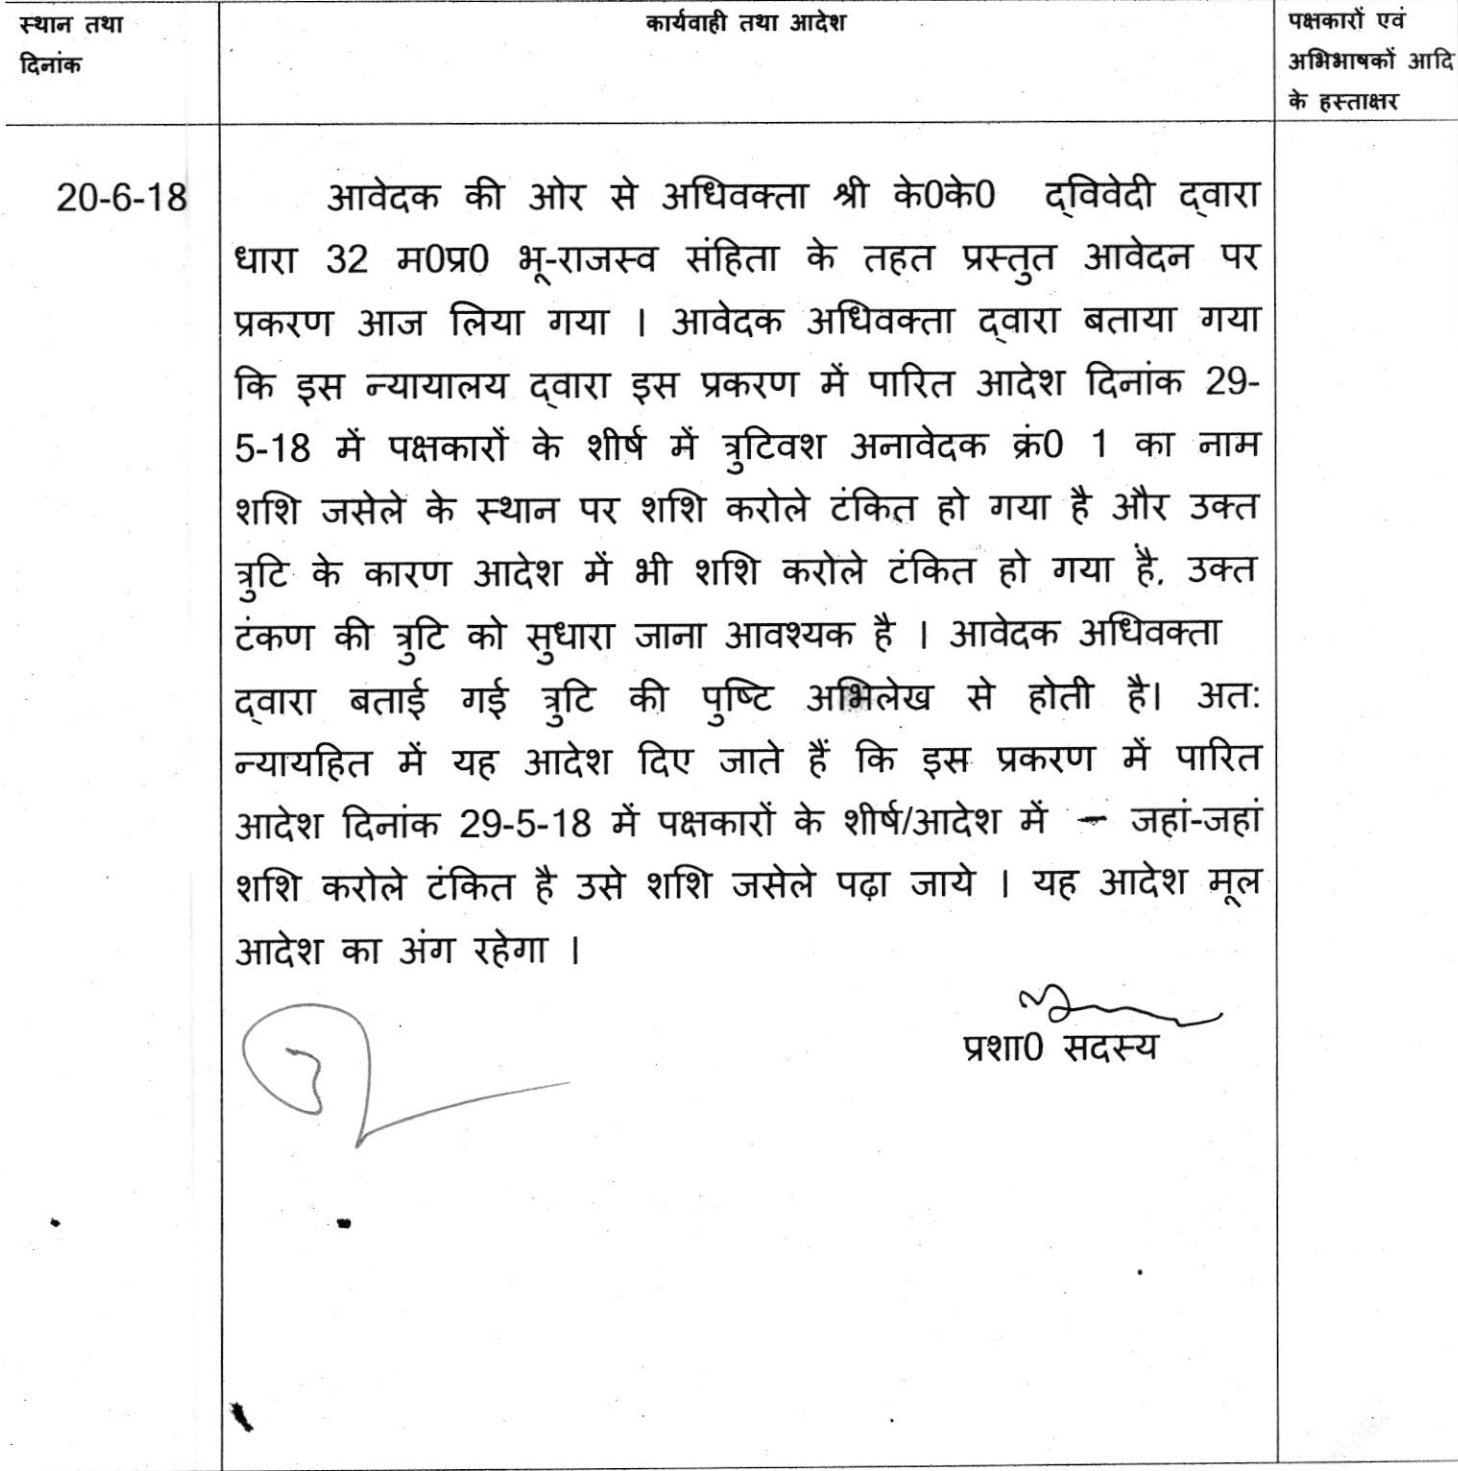 स्थान तथा
दिनांक
कार्यवाही तथा आदेश
पक्षकारों एवं
अभिभाषकों आदि
के हस्ताक्षर
20-6-18
आवेदक की ओर से अधिवक्ता श्री के0के0 द्विवेदी द्वारा
धारा 32 म0प्र0 भू-राजस्व संहिता के तहत प्रस्तुत आवेदन पर
प्रकरण आज लिया गया । आवेदक अधिवक्ता द्वारा बताया गया
कि इस न्यायालय द्वारा इस प्रकरण में पारित आदेश दिनांक 29-
5-18 में पक्षकारों के शीर्ष में त्रुटिवश अनावेदक क्रं0 1 का नाम
शशि जसेले के स्थान पर शशि करोले टंकित हो गया है और उक्त
त्रुटि के कारण आदेश में भी शशि करोले टंकित हो गया है, उक्त
टंकण की त्रुटि को सुधारा जाना आवश्यक है । आवेदक अधिवक्ता
द्वारा बताई गई त्रुटि की पुष्टि अभिलेख से होती है। अत:
न्यायहित में यह आदेश दिए जाते हैं कि इस प्रकरण में पारित
आदेश दिनांक 29-5-18 में पक्षकारों के शीर्ष/आदेश में – जहां-जहां
शशि करोले टंकित है उसे शशि जसेले पढ़ा जाये । यह आदेश मूल
आदेश का अंग रहेगा ।
प्रशा0 सदस्य